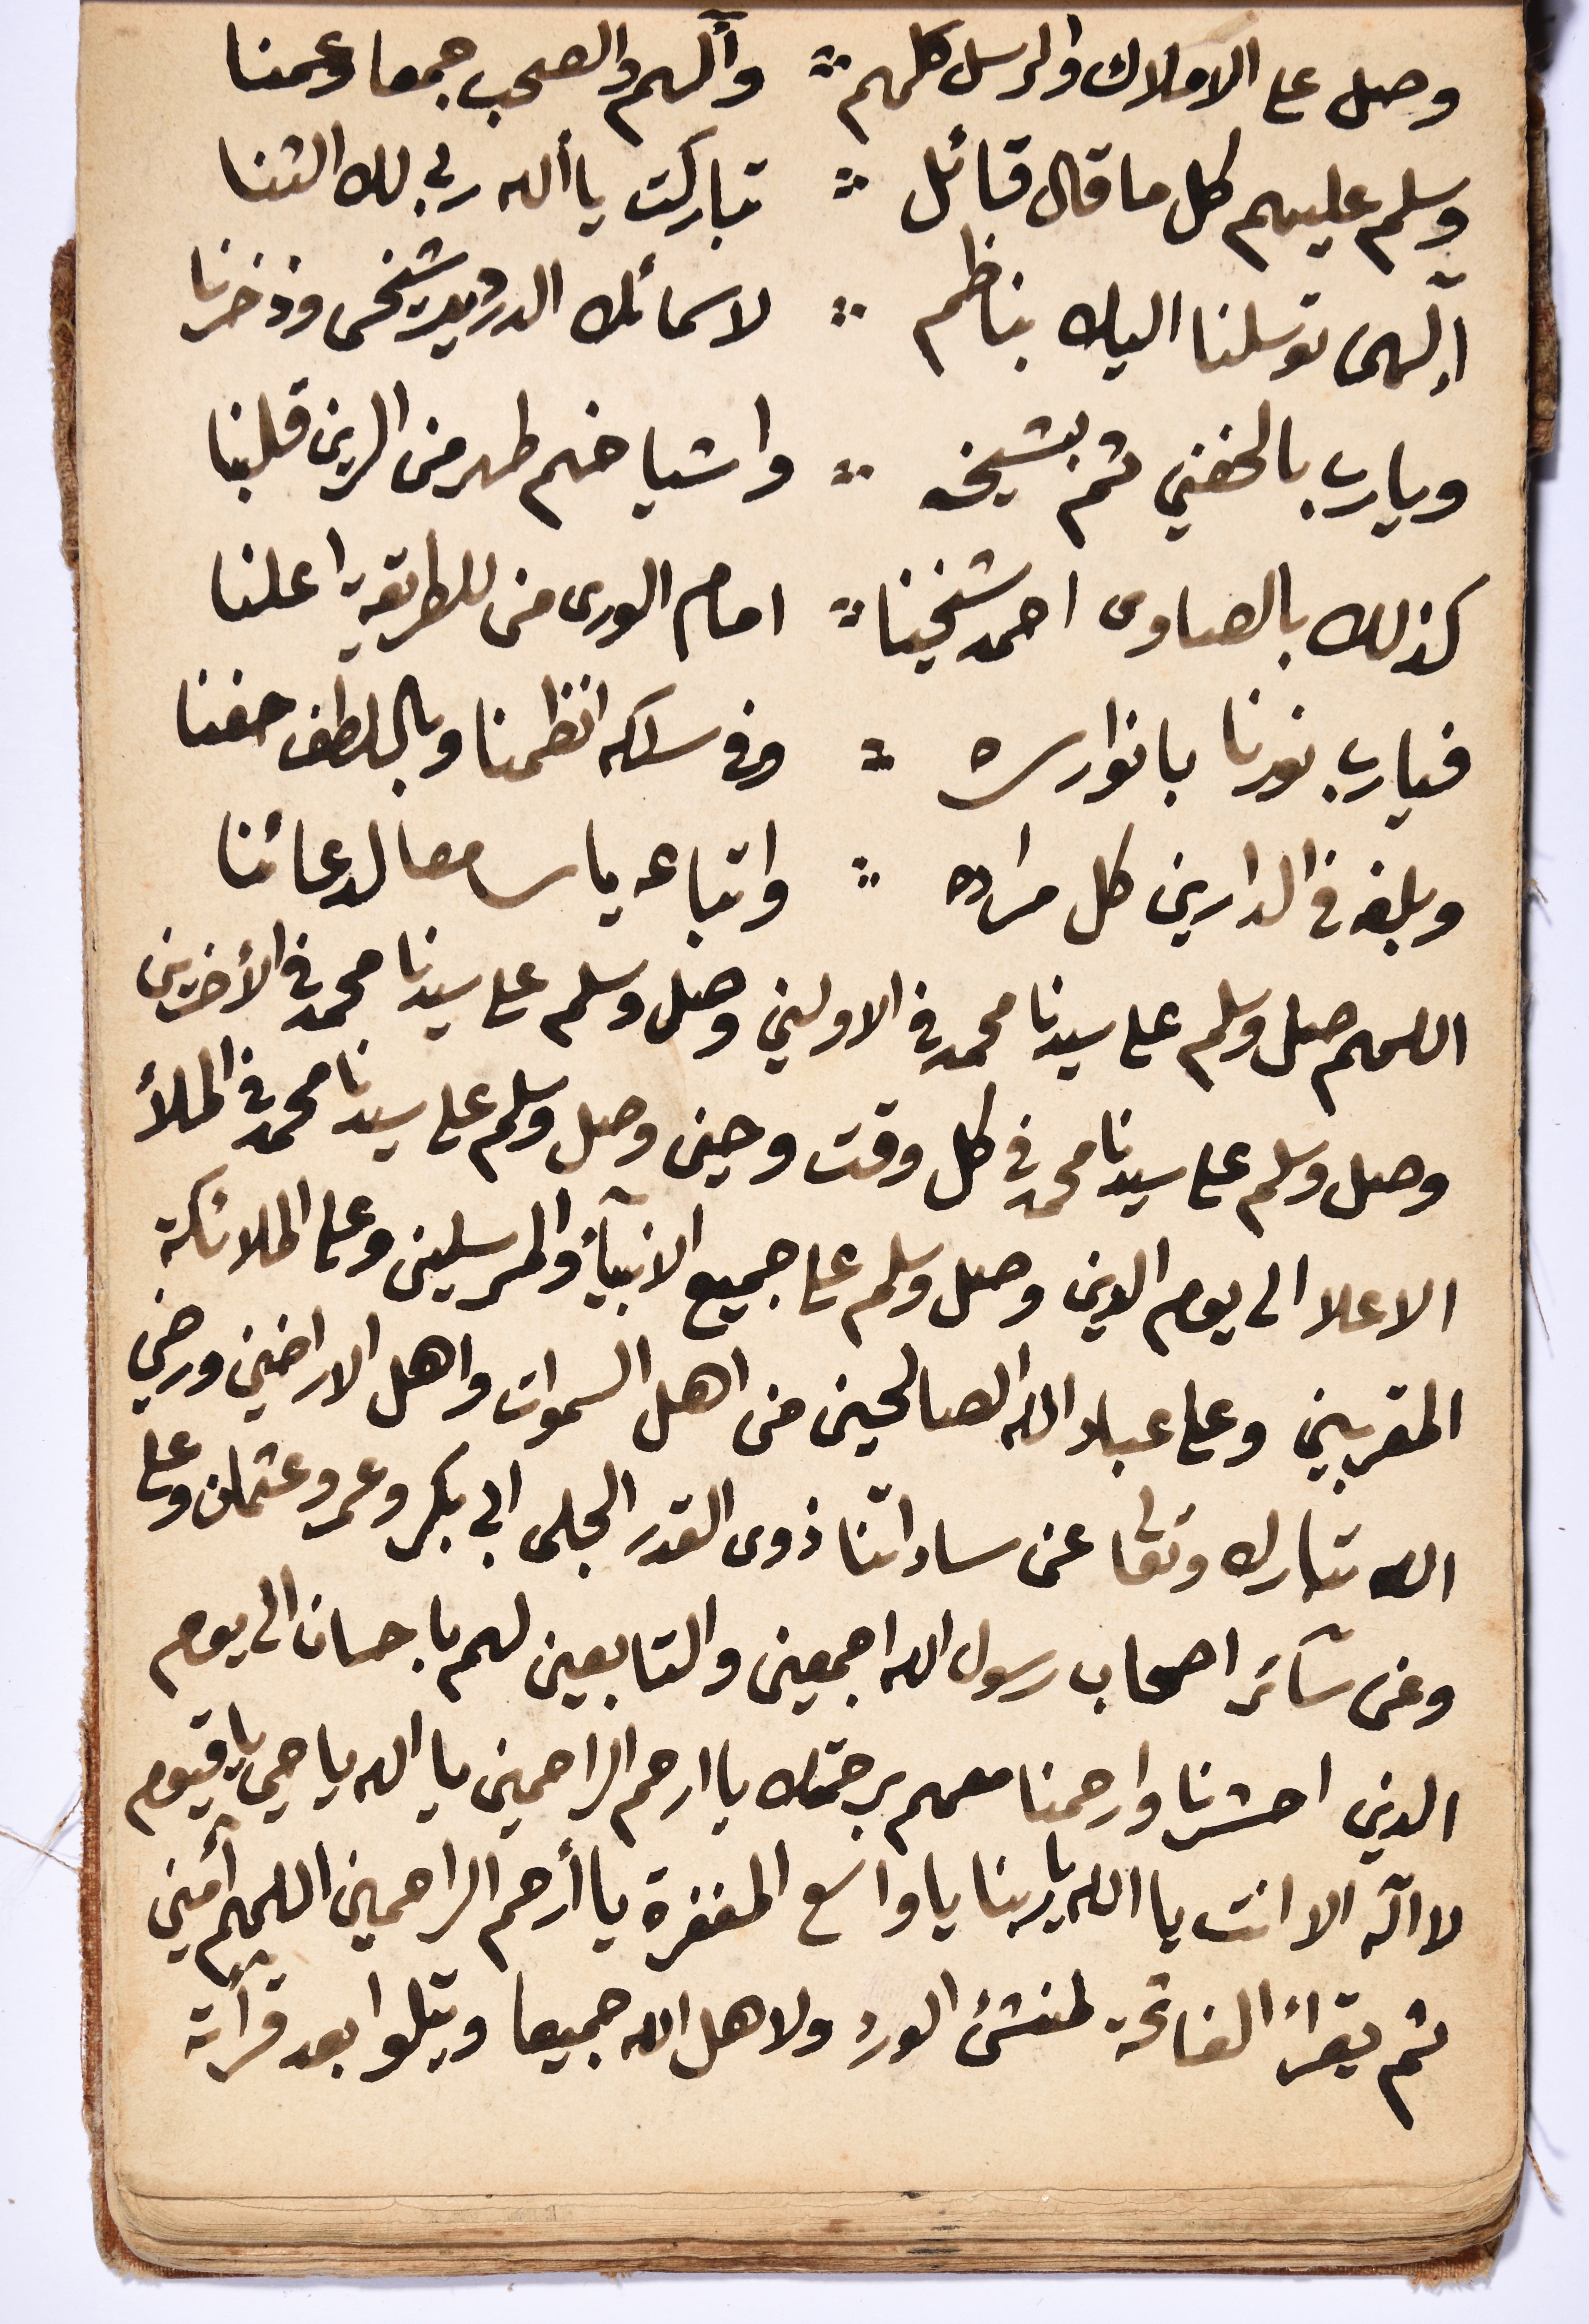 وصل على الاملاك والرسل كلهم ∴ وآلهم والصحب جمعا وعمنا
وسلم عليهم كل ما قال قائل ∴ تباركت يا ألله ربي لك الثنا
الهى توسلنا اليك بناظم ∴ لاسمائك الدردير شيخى وذخرنا
ويارب بالحفني ثم بشيخه ∴ واشياخهم طهر من الرين قلبنا
كذلك بالصاوى احمد شيخينا ∴ امام الورى من للطريقة اعلنا
فيارب نورنا بانوار سره ∴ وفي سلكه انظمنا وباللطف حفنا
وبلغه في الدارين كل مراده ∴ واتباعه يا سامعا لدعائنا
اللهم صل وسلم على سيدنا محمد في الاولين وصل وسلم على سيدنا محمد في الأخرين
وصل وسلم على سيدنا محمد في كل وقت وحين وصل وسلم على سيدنا محمد في الملأ
الاعلا الى يوم الدين وصل وسلم على جميع الانبيآء والمرسلين وعلى الملائكة
المقربين وعلى عباد الله الصالحين من اهل السموات واهل الاراضين ورضي
الله تبارك وتعا عن ساداتنا ذوى القدر الجلى ابي بكر وعمر وعثمان وعلى
وعن سآئر اصحاب رسول الله اجمعين والتابعين لهم باحسان الى يوم
الدين احشرنا وارحمنا معهم برحمتك يا ارحم الراحمين يا الله يا حي يا قيوم
لا اله الا انت يا الله يا ربنا يا واسع المغفرة يا أرحم الراحمين اللهم أمين
ثم يقرأ الفاتحة لمنشئ الورد ولاهل الله جميعا ويتلوا بعد قرأته